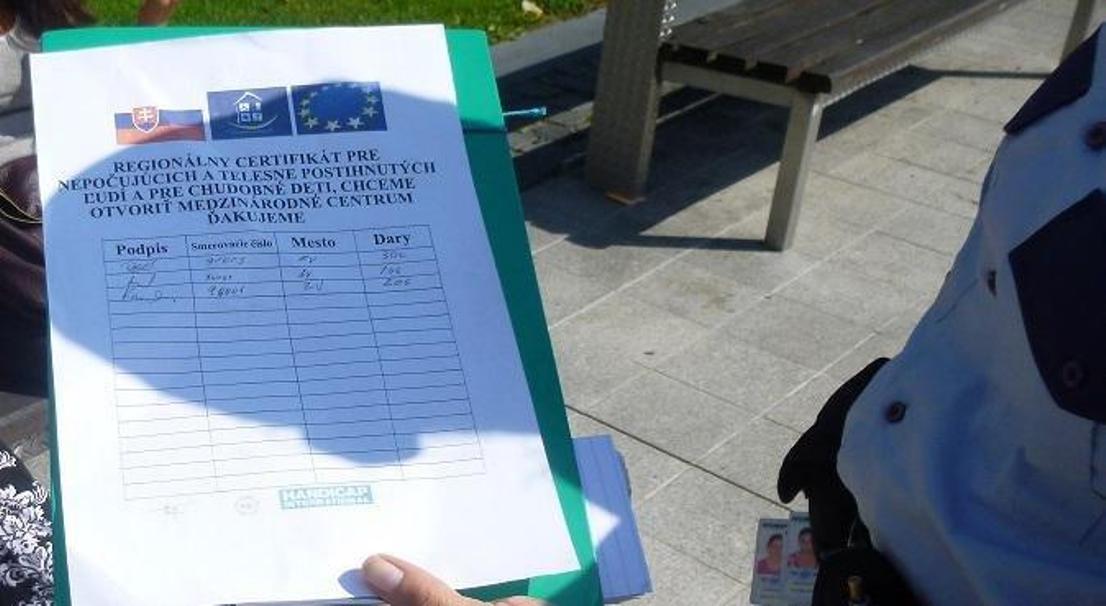 REGIONÁLNY CERTIFIKÁT PRE
NEPOČUJÚCICH A TELESNE POSTIHNUTÝCH
ĽUDÍ A PRE CHUDOBNÉ DETI, CHCEME
OTVORIŤ MEDZINÁRODNÉ CENTRUM
ĎAKUJEME
Podpis Smerovacie číslo Mesto Dary
HANDICAP
INTERNATIONAL